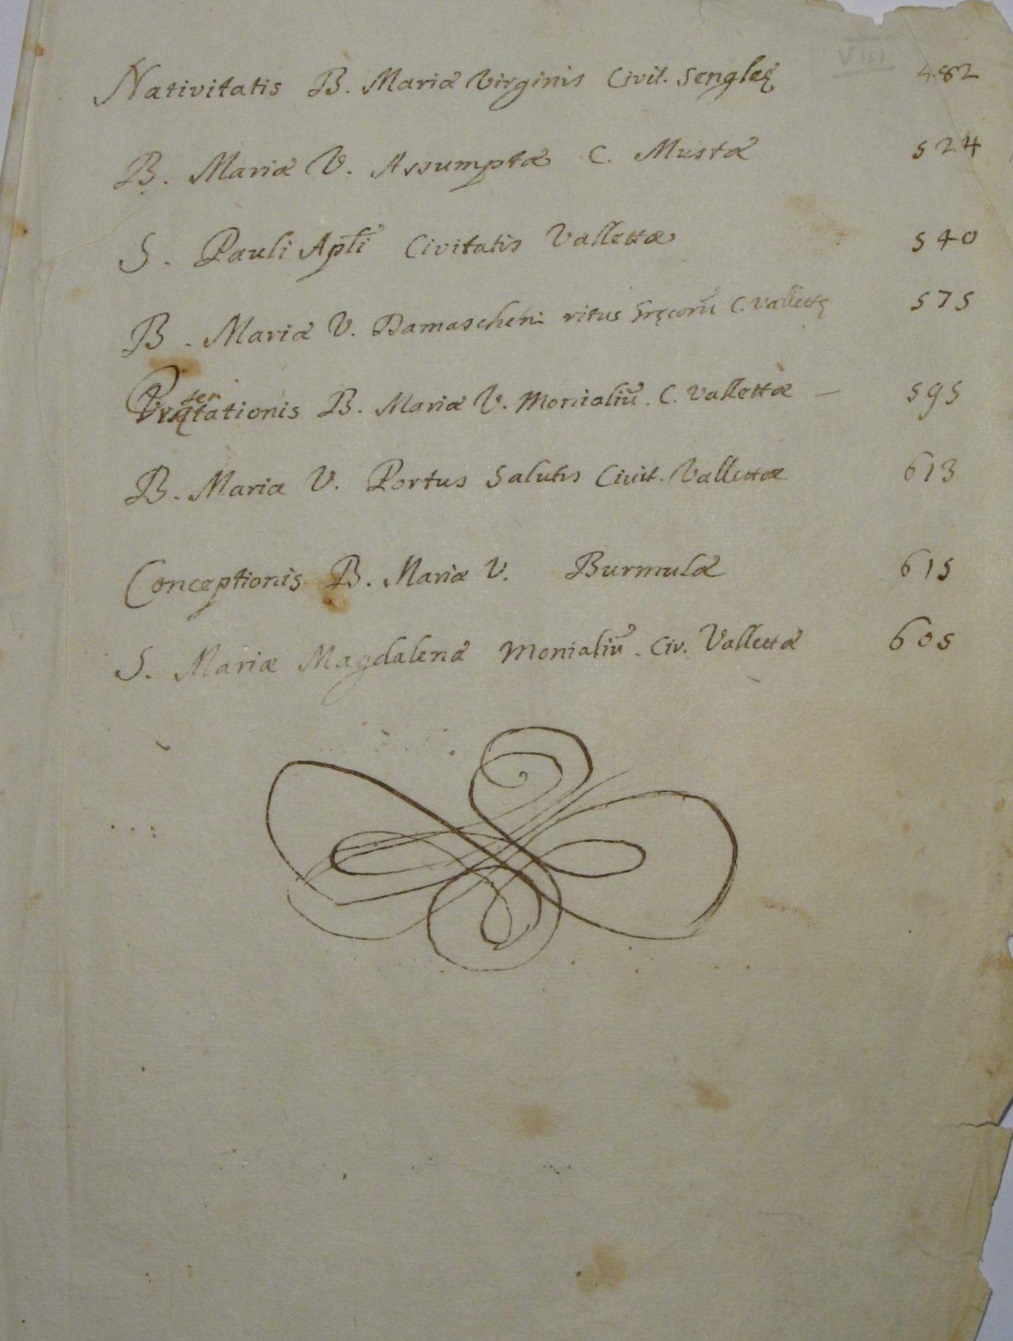 VIII
Nativitatis B. Mariæ Virginis Civit. Sengleę 482
B. Mariæ V. Assumptæ C. Mustæ 524
S. Pauli Apłi Civitatis Vallettæ 540
B. Mariæ V. Damascheni ritus Gręcorũ C. Vallettę 575
B. Mariæ V. Monialiũ. C. Vallettæ — 595
B. Mariæ V. Portus Salutis Civit. Vallettæ 613
Conceptionis B. Mariæ V. Burmulæ 615
S. Mariæ Magdalenæ Monialiũ. Civ. Vallettæ 605